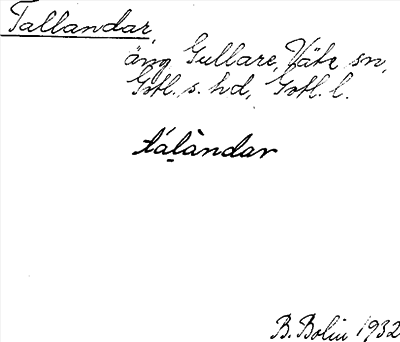 Tallandar,
äng Gullare, Väte sn,
Gotl. s. hd, Gotl. l.
tálàndar
B. Bolin 1932